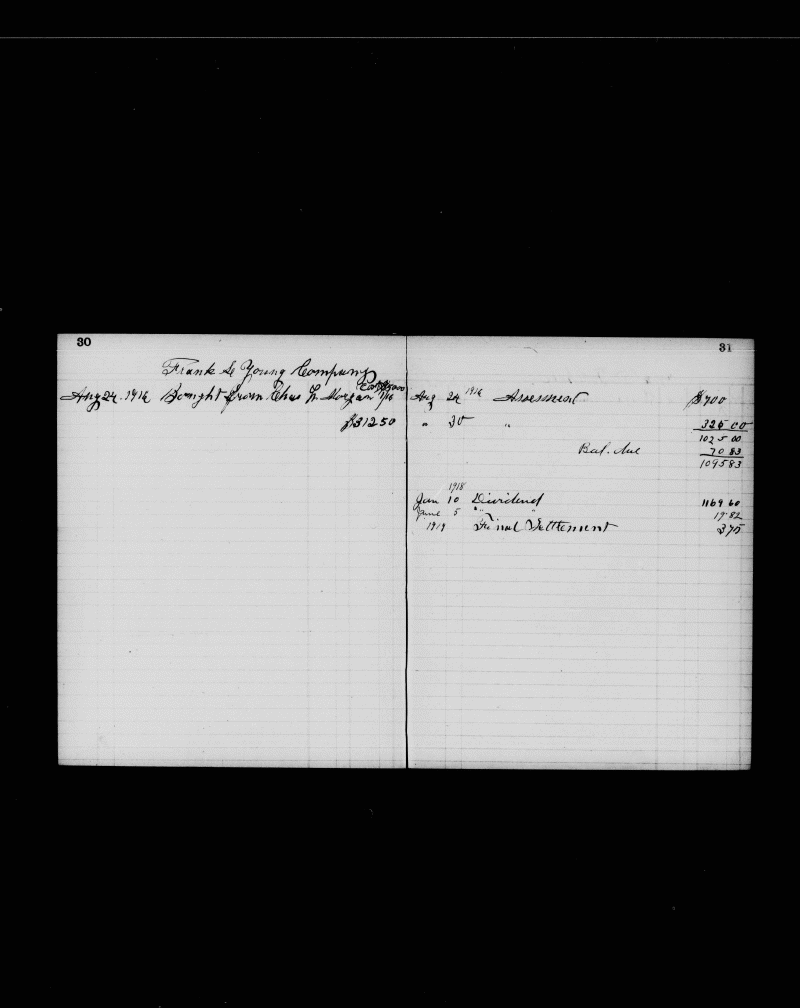 30
Frank Le Young Company
Aug 24. 1916 Bought from Chas L. Morgan 1/16
$312 50
31
Aug 24 1916 Assessment $700
" 30 " 325 00
1025 00
Bal. due 70 83
1095 83
1918
Jan 10 Dividend 1169 60
June 5 " " 19 82
1919 Final Settlement 3 75